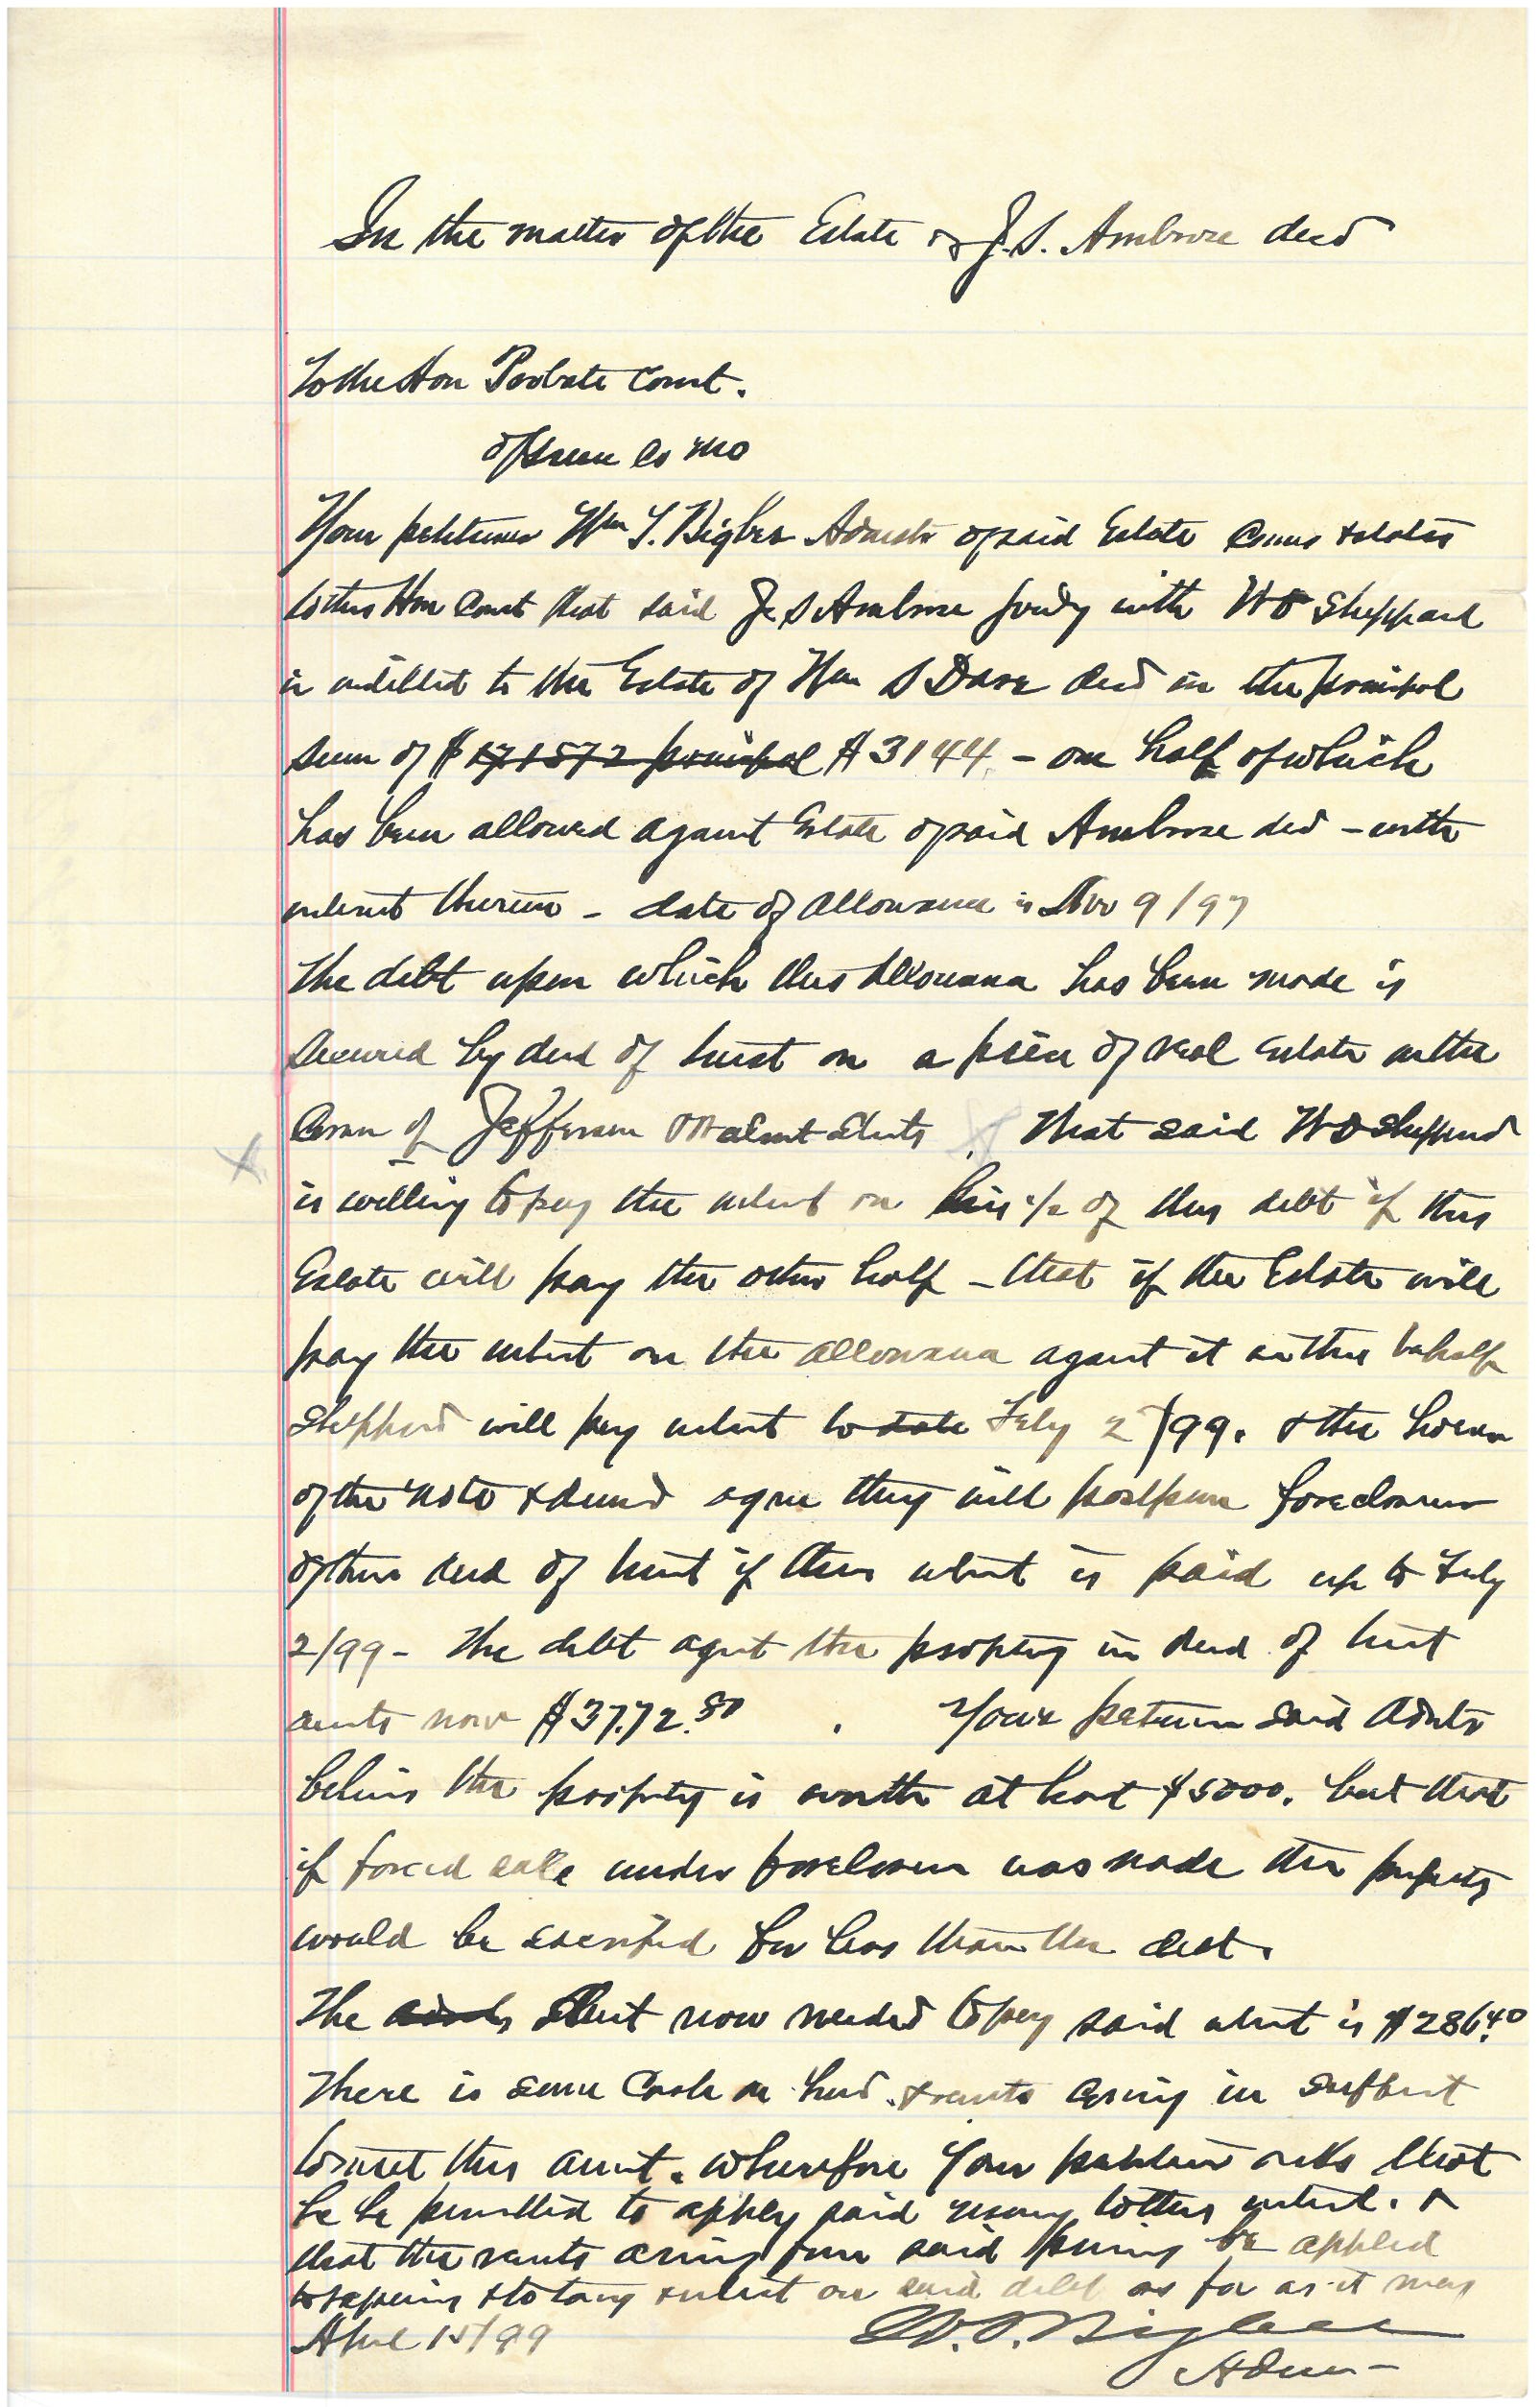 In the matter of the Estate of J. S. Ambrose decd
To the Hon Probate Court.
of Greene Co Mo
Your petitioner Wm S. Bigbee Admstr of said Estate comes & states
to this Hon Court that said J. S Ambrose jointly with W D Sheppard
is indebted to the Estate of Wm S Dove decd in the principal
sum of $ principal $3144. - one half of which
has been allowed against Estate of said Ambrose decd - with
interest thereon - date of allowance is Nov 9/97
The debt upon which this allowance has been made is
secured by deed of trust on a piece of real estate on the
Corner of Jefferson & Walnut Streets X . That said W D Sheppard
X
is willing to pay the interest on his 1/2 of this debt if this
Estate will pay the other half - that if the Estate will
pay the interest on the allowance against it on this behalf
Sheppard will pay interest to date July 2/99. & the holders
of the note & deed agree they will postpone foreclosure
of this deed of trust if this interest is paid up to July
2/99 - The debt agst the property in deed of trust
amts now $3772.80 . Your petitioner said Admtr
believes the property is worth at least $5000. but that
if forced sale under foreclosure was made the property
would be sacrificed for less than the debt.
The amt now needed to pay said interest is $286.40
There is some Cash on hand & rents coming in sufficient
to meet this amount. Wherefore Your petitioner asks that
he be permitted to apply said money to this interest. &
that the rents arising from said property be applied
to repairs & to taxes & interest on said debt as far as it may
April 15/99 W. S. Bigbee
Adm -